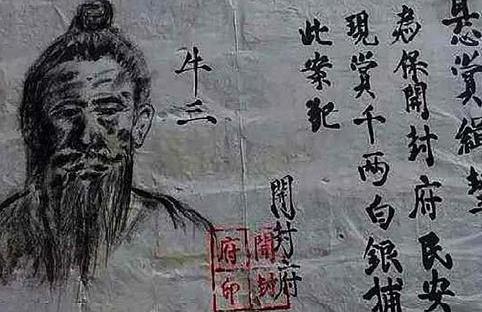 賞緝
為保開封府民安
現賞千两白銀捕
此案犯
開封府
開封
府印
牛三